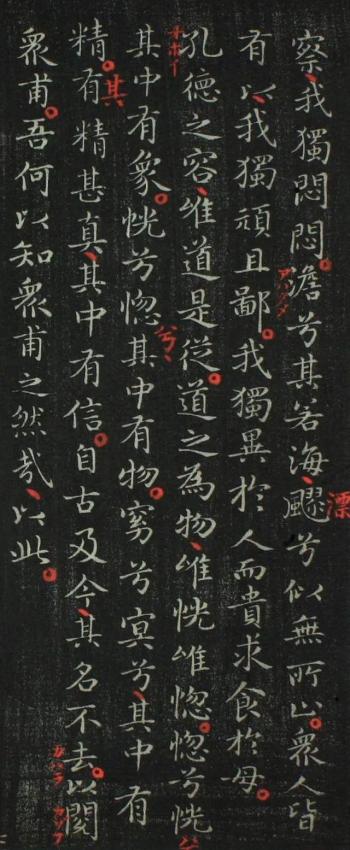 察、我獨悶悶。澹兮其若海、飂兮似無所止。衆人皆
漂
有以、我獨頑且鄙。我獨異於人而貴求食於母。
孔德之容、惟道是從。道之為物、惟恍惟惚。惚兮恍
其中有象。恍兮惚其中有物。窈兮冥兮、其中有
兮、
精。有精甚真、其中有信。自古及今、其名不去。以閱
其
衆甫。吾何以知衆甫之然哉、以此。